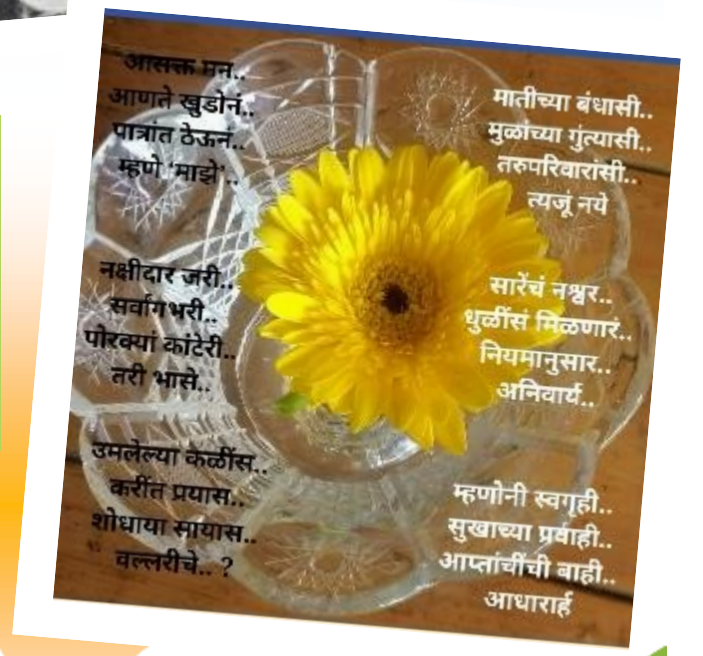 आसक्त मन..
आणते खुडोनं..
पात्रांत ठेऊनं..
म्हणे 'माझे'..
नक्षीदार जरी..
सर्वांगभरी..
पोरक्यां कांटेरी..
तरी भासे..
उमलेल्या कळींस..
करींत प्रयास..
शोधाया सायास..
वल्लरीचे.. ?
मातीच्या बंधासी..
मुळांच्या गुंत्यासी..
तरुपरिवारांसी..
त्यजूं नये
सारेंचं नश्वर..
धुळींसं मिळणारं..
नियमानुसार..
अनिवार्य..
म्हणोनी स्वगृही..
सुखाच्या प्रवाही..
आप्तांचींची बाही..
आधारार्ह